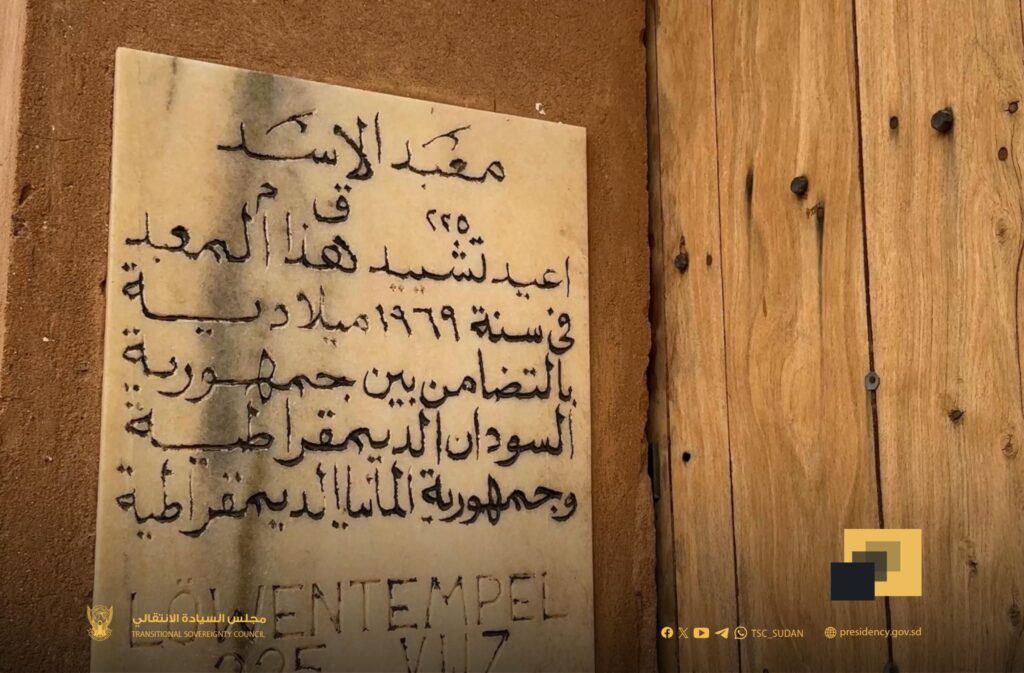 معبد الاسد
٢٢٥ ق م
اعيد تشييد هذا المعبد
في سنة ١٩٦٩ ميلادية
بالتضامن بين جمهورية
السودان الديمقراطية
وجمهورية المانيا الديمقراطية
LÖWENTEMPEL
225 V.U.Z
مجلس السيادة الانتقالي
TRANSITIONAL SOVEREIGNTY COUNCIL
TSC_SUDAN
presidency.gov.sd